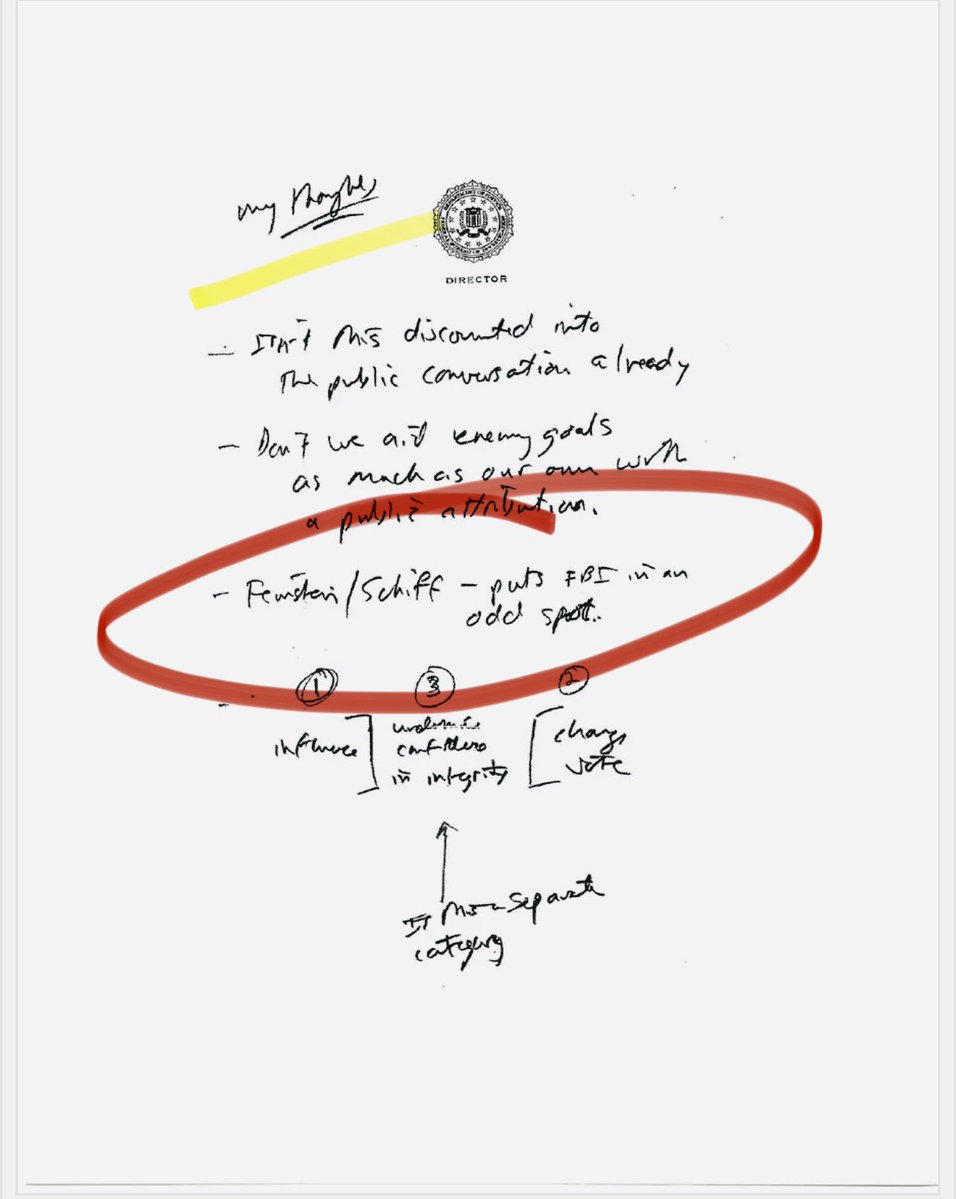 my thoughts
DIRECTOR
- Isn't this discounted into
the public conversation already
- Don't we aid enemy goals
as much as our own with
a public attribution.
- Feinstein/Schiff - puts FBI in an
odd spot.
-
① ③ ②
influence] undermine [change
confidence vote
in integrity
Is this a separate
category